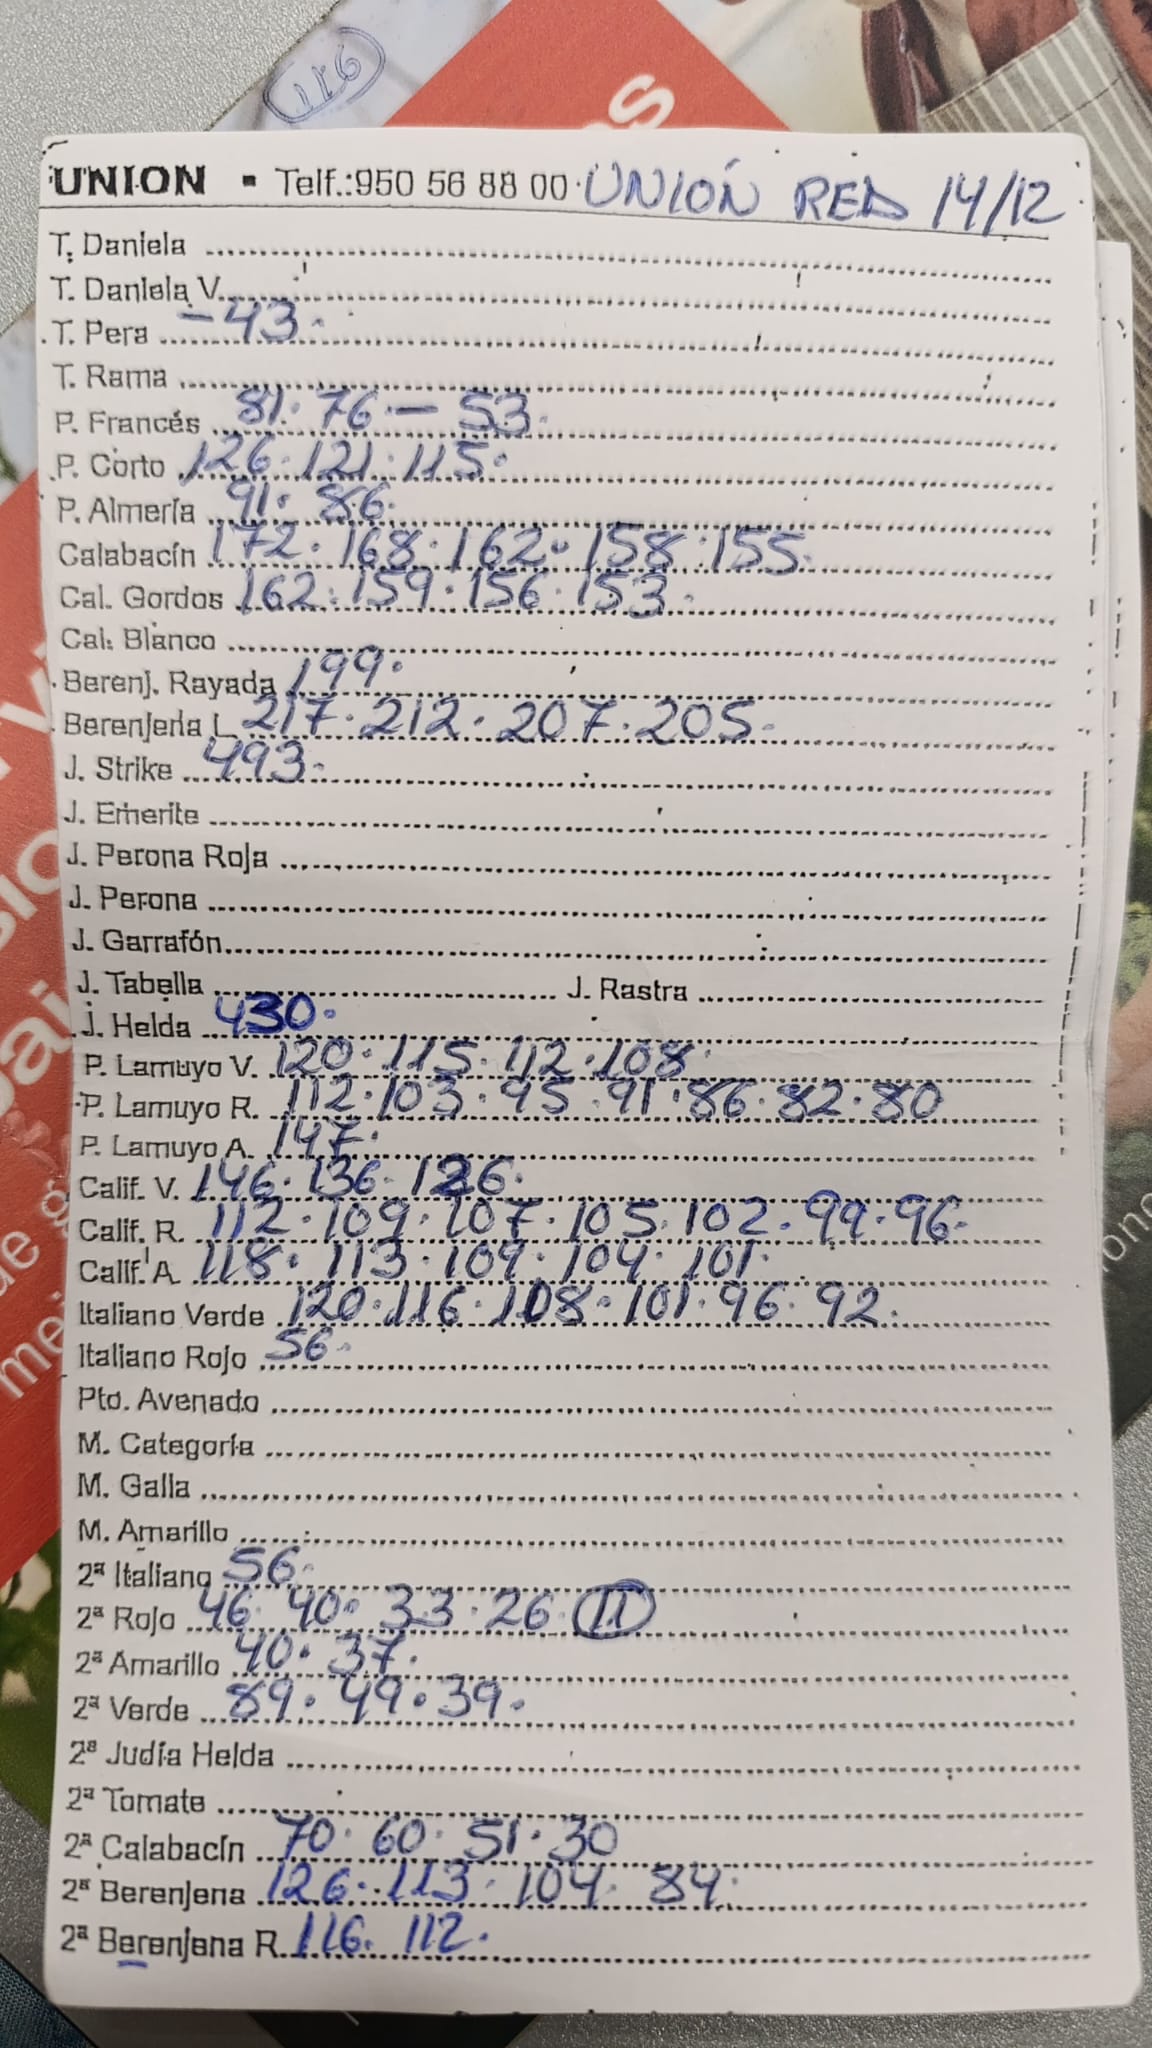 116
UNION ▪ Telf.:950 56 88 00 · UNIÓN RED 14/12
T. Daniela
T. Daniela V.
T. Pera - 43.
T. Rama
P. Francés 81. 76 - 53.
P. Corto 126. 121. 115.
P. Almería 91. 86.
Calabacín 172. 168. 162. 158. 155.
Cal. Gordos 162. 159. 156. 153.
Cal. Blanco
Berenj. Rayada 199.
Berenjena L. 217. 212. 207. 205.
J. Strike 493.
J. Emerite
J. Perona Roja
J. Perona
J. Garrafón
J. Tabella J. Rastra
J. Helda 430.
P. Lamuyo V. 120. 115. 112. 108.
P. Lamuyo R. 112. 103. 95. 91. 86. 82. 80
P. Lamuyo A. 147.
Calif. V. 146. 136. 126.
Calif. R. 112. 109. 107. 105. 102. 99. 96.
Calif. A. 118. 113. 109. 104. 101.
Italiano Verde 120. 116. 108. 101. 96. 92.
Italiano Rojo 56.
Pto. Avenado
M. Categoría
M. Galia
M. Amarillo
2ª Italiano 56.
2ª Rojo 46. 40. 33. 26. 11
2ª Amarillo 40. 37.
2ª Verde 89. 49. 39.
2ª Judía Helda
2ª Tomate
2ª Calabacín 70. 60. 51. 30
2ª Berenjena 126. 113. 104. 84.
2ª Berenjena R. 116. 112.